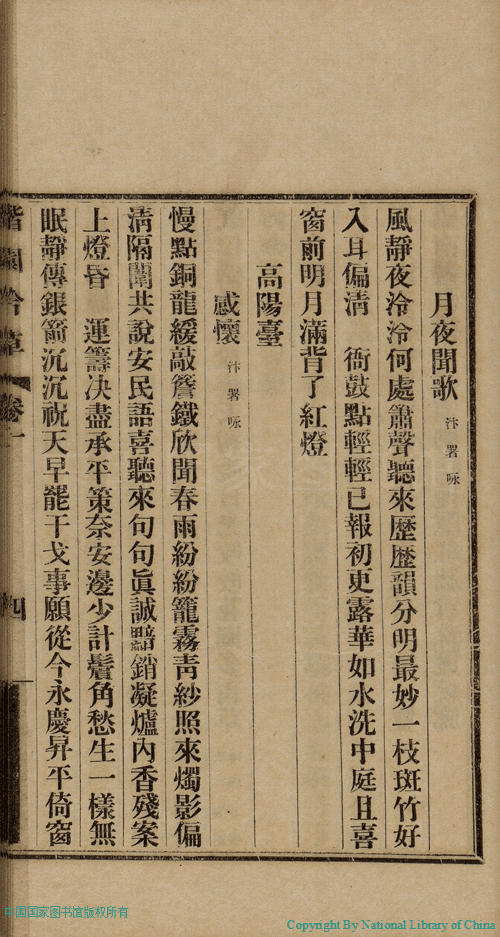 月夜聞歌 汴署咏
風靜夜泠泠何處簫聲聽來歷歷韻分明最妙一枝斑竹好
入耳偏淸 衙鼓點輕輕已報初更露華如水洗中庭且喜
窗前明月滿背了紅燈
高陽臺
感懷 汴署咏
慢點銅龍緩敲簷鐵欣聞春雨紛紛籠霧靑紗照來燭影偏
淸隔闈共說安民語喜聽來句句眞誠黯銷凝爐內香殘案
上燈昏 運籌决盡承平策奈安邊少計鬢角愁生一樣無
眠靜傳銀箭沉沉祝天早罷干戈事願從今永慶昇平倚窗
卷一
四
中国国家图书馆版权所有
Copyright By National Library of China